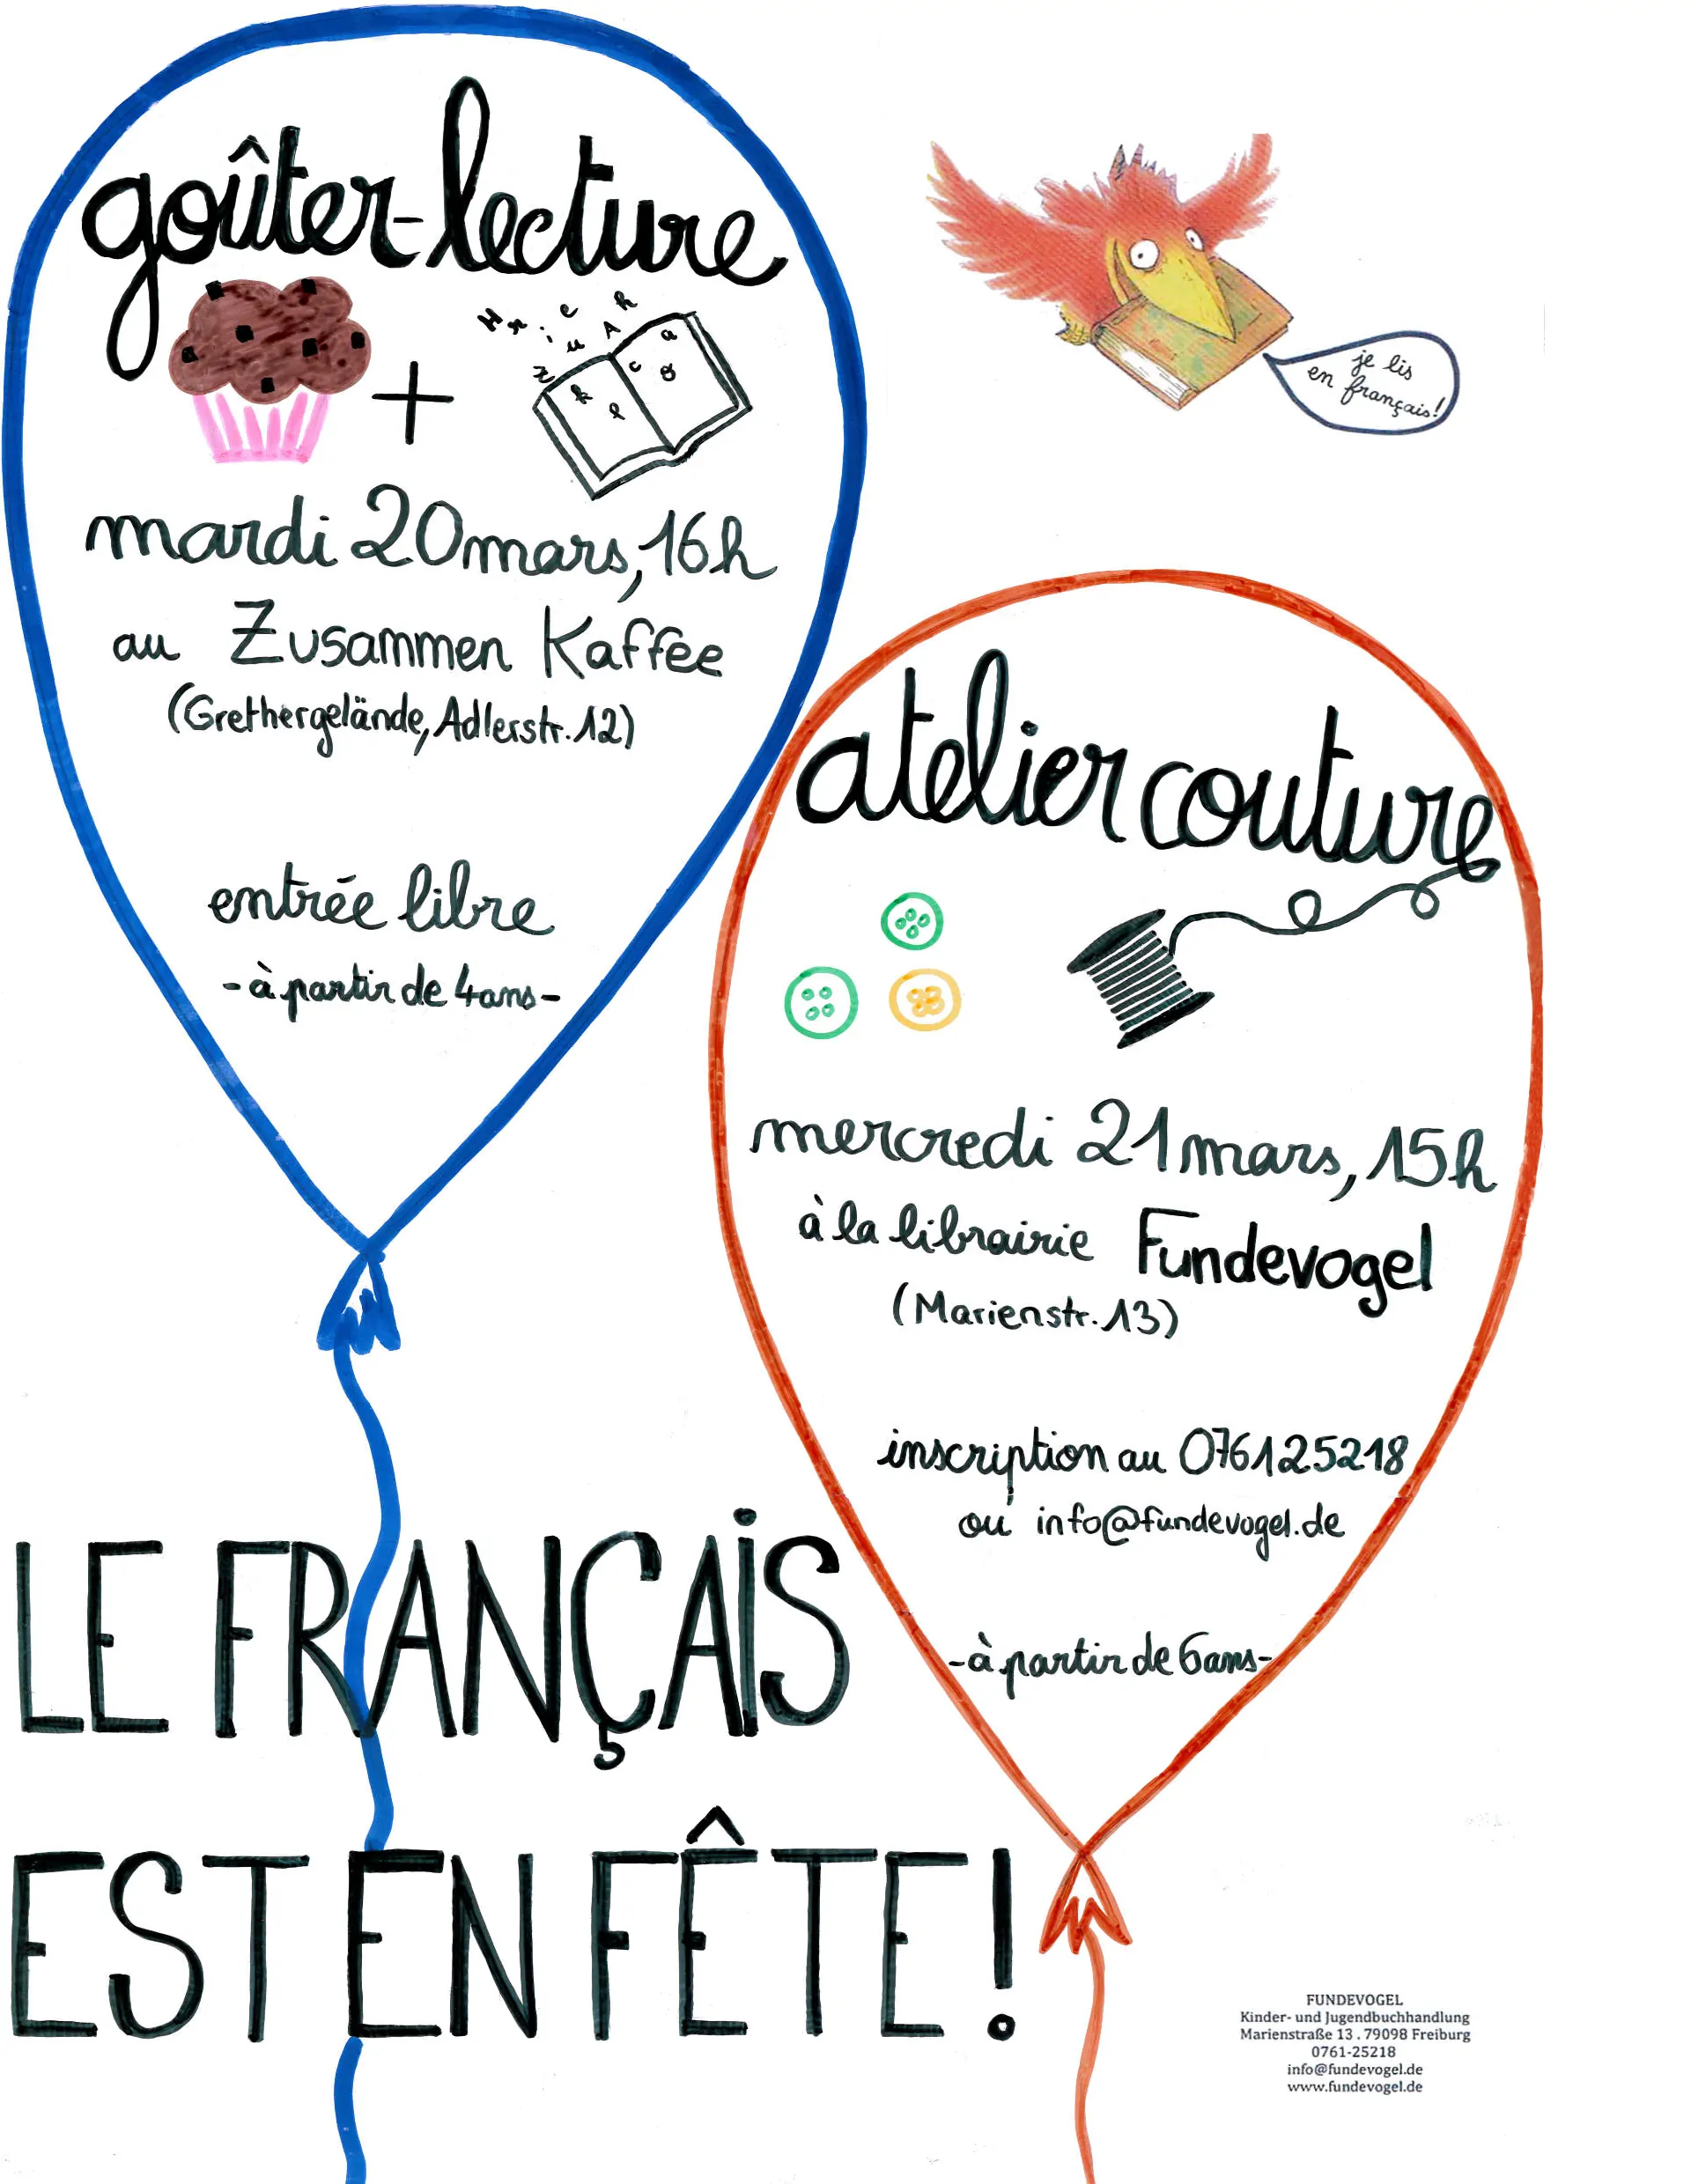 goûter-lecture
mardi 20 mars, 16h
au Zusammen Kaffee
(Grethergelände, Adlerstr. 12)
entrée libre
- à partir de 4 ans -
je lis
en français!
atelier couture
mercredi 21 mars, 15h
à la librairie Fundevogel
(Marienstr. 13)
inscription au 076125218
ou info@fundevogel.de
- à partir de 6 ans -
LE FRANÇAiS
EST EN FÊTE!
FUNDEVOGEL
Kinder- und Jugendbuchhandlung
Marienstraße 13 . 79098 Freiburg
0761-25218
info@fundevogel.de
www.fundevogel.de